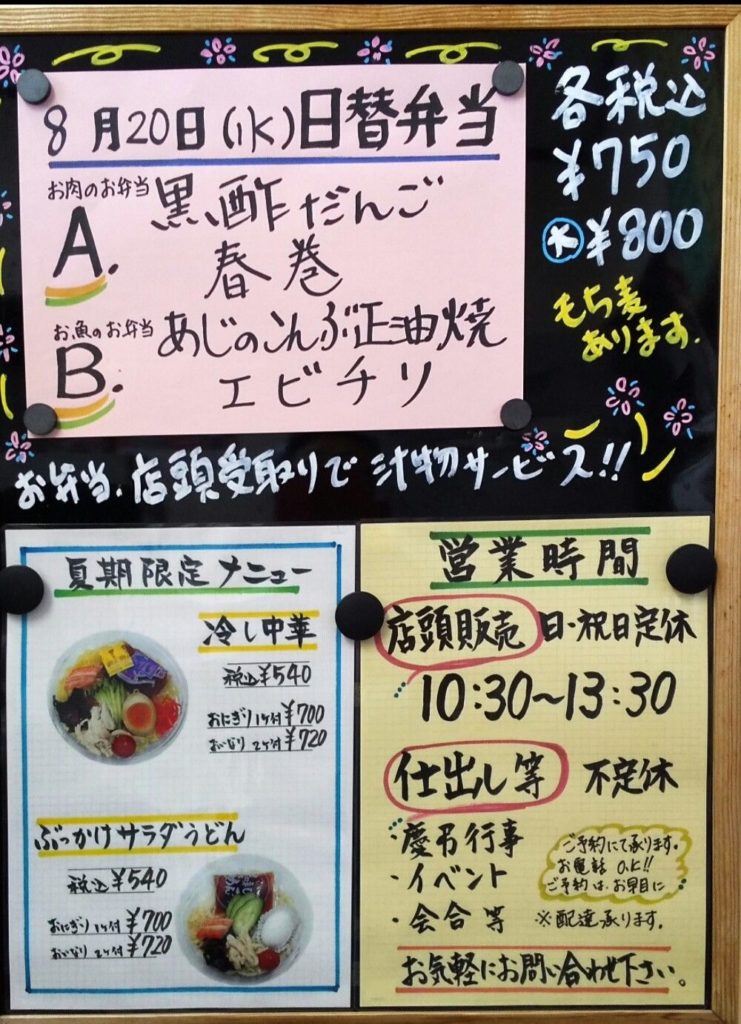 8月20日(水)日替弁当
お肉のお弁当
A.
黒酢だんご
春巻
お魚のお弁当
B.
あじのこんぶ正油焼
エビチリ
各税込
¥750
大¥800
もち麦
あります.
お弁当、店頭受取りで汁物サービス!!
夏期限定メニュー
冷し中華
税込¥540
おにぎり1ケ付¥700
おいなり2ケ付¥720
ぶっかけサラダうどん
税込¥540
おにぎり1ケ付¥700
おいなり2ケ付¥720
営業時間
店頭販売 日・祝日定休
10:30~13:30
仕出し等 不定休
・慶弔行事
・イベント
・会合等
ご予約にて承ります.
お電話O.K!!
ご予約は、お早目に
※配達承ります.
お気軽にお問い合わせ下さい。